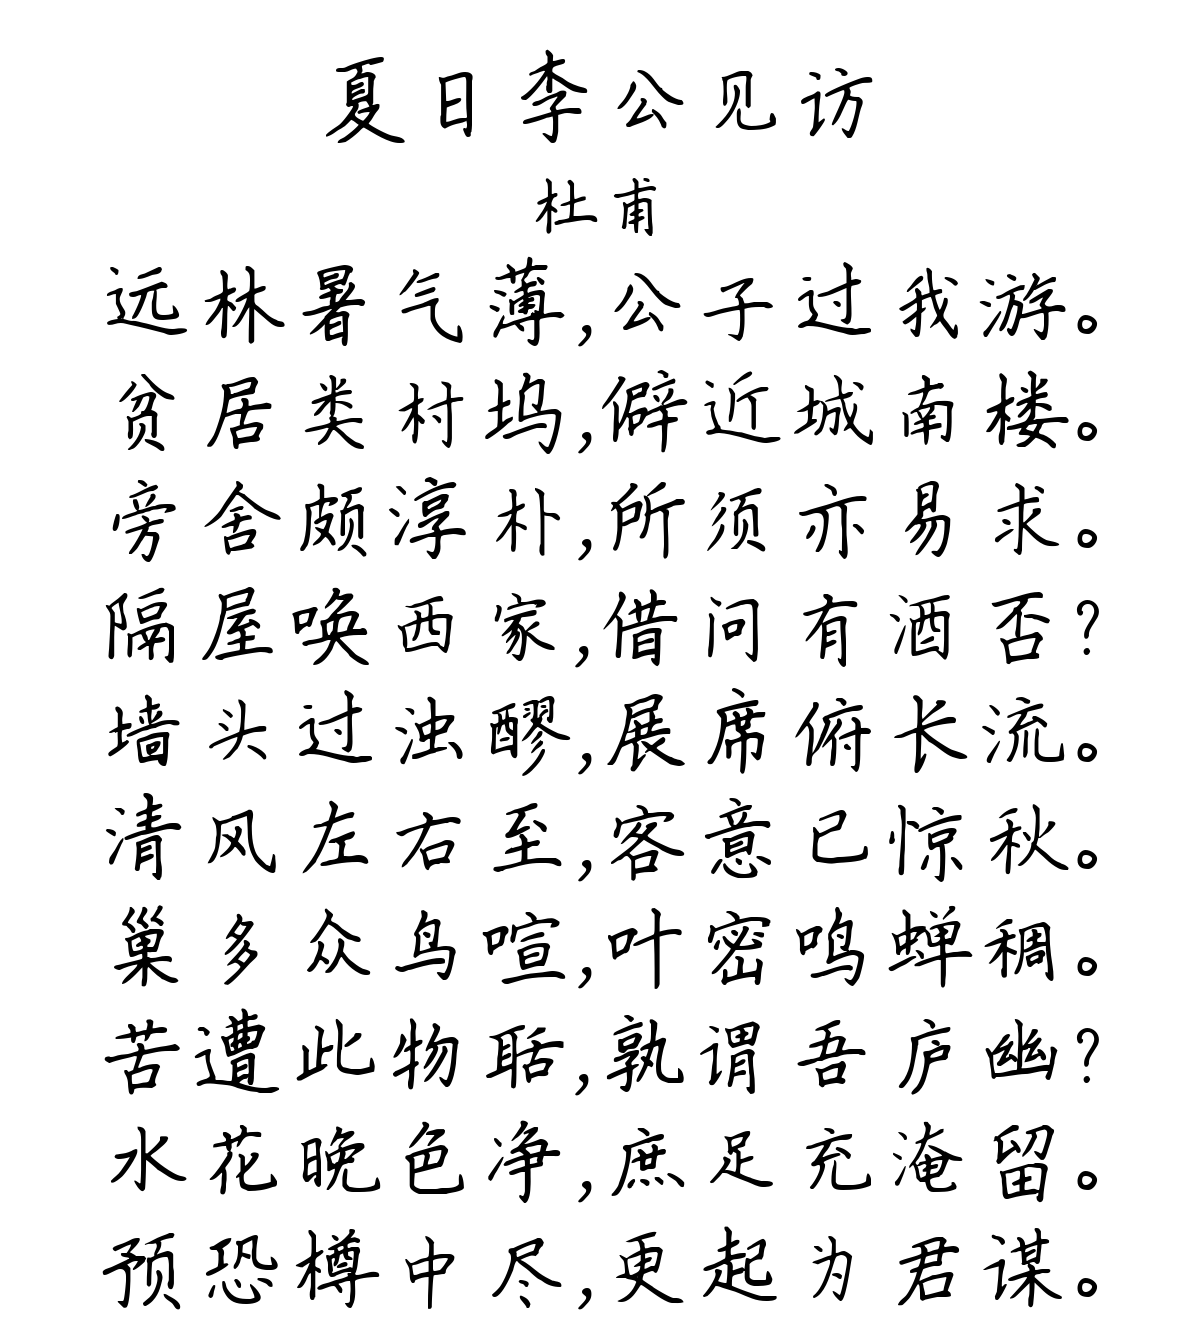 夏日李公见访
杜甫
远林暑气薄,公子过我游。
贫居类村坞,僻近城南楼。
旁舍颇淳朴,所须亦易求。
隔屋唤西家,借问有酒否?
墙头过浊醪,展席俯长流。
清风左右至,客意已惊秋。
巢多众鸟喧,叶密鸣蝉稠。
苦遭此物聒,孰谓吾庐幽?
水花晚色净,庶足充淹留。
预恐樽中尽,更起为君谋。